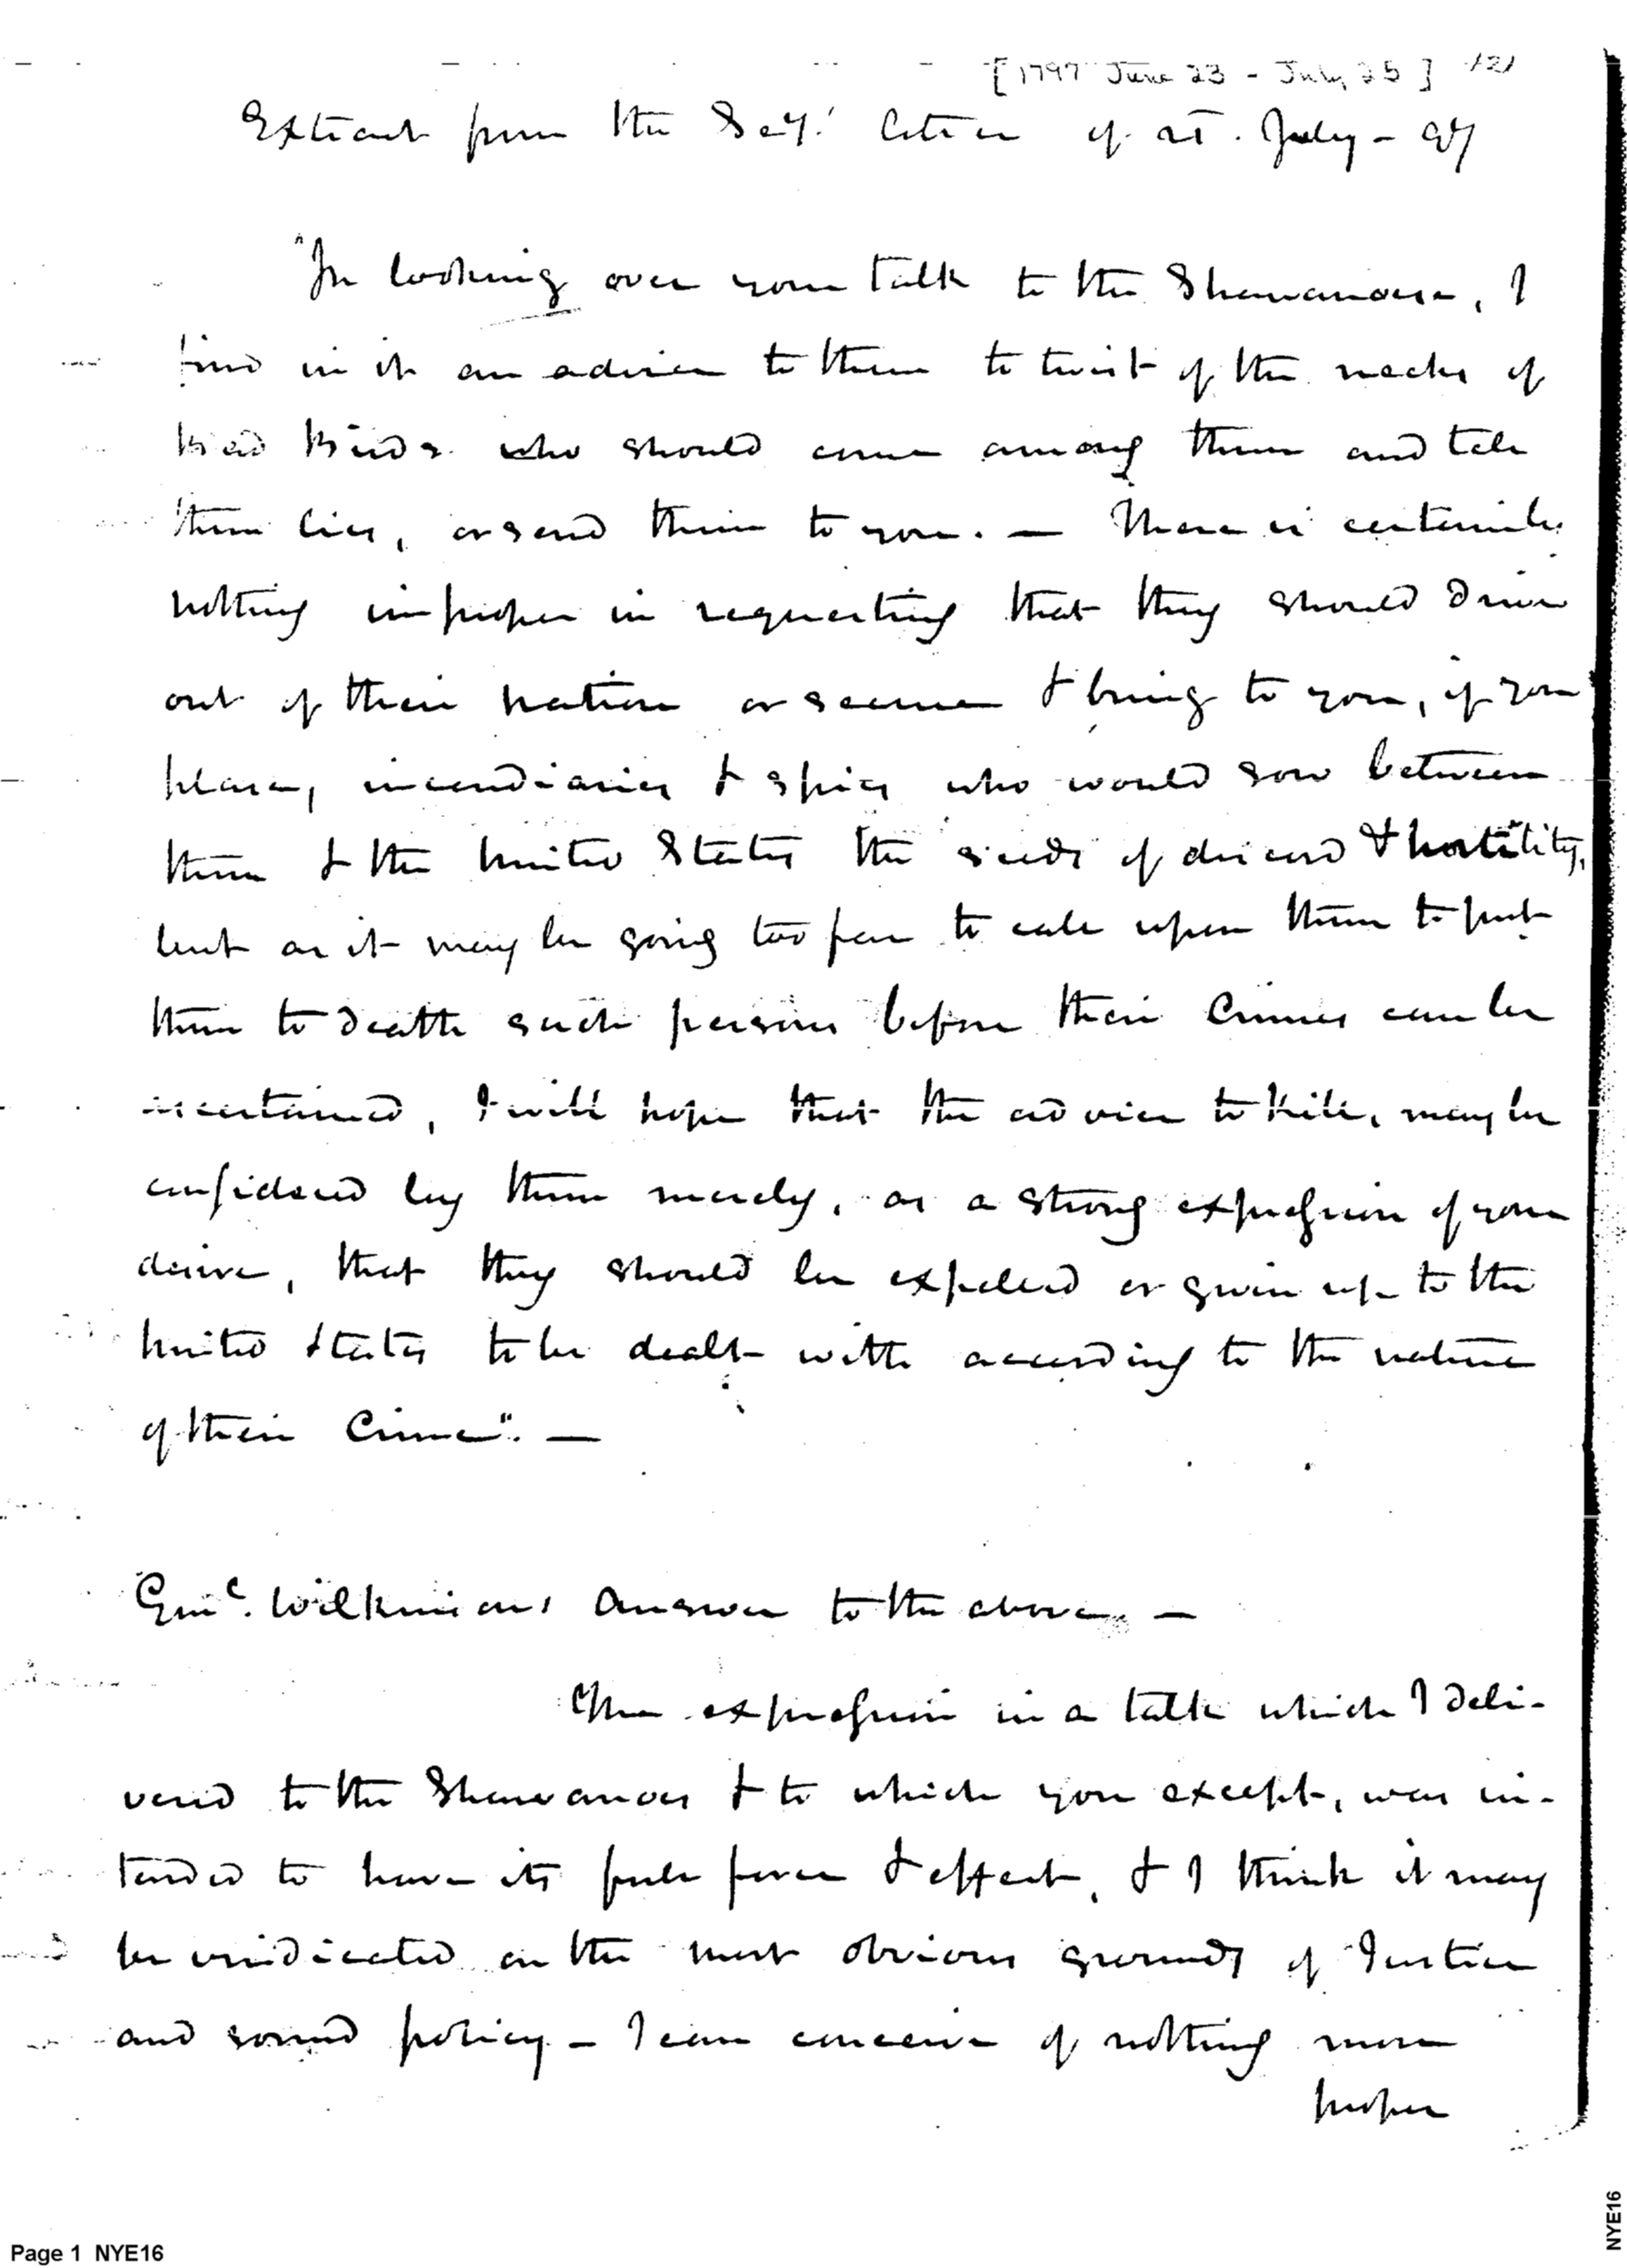 [1797 June 23 - July 25] (2)
Extract from the Secy. letter of 2d. July - 97
"In looking over your talk to the Shawanoese, I
find in it an advice to them to twist of the necks of
Bad Birds who should come among them and tell
them lies, or send them to you. — There is certainly
nothing improper in requesting that they should drive
out of their nation or secure & bring to you, if you
please, incendiaries & spies who would sow between
them & the United States the seeds of discord & hostility,
but as it may be going too far to call upon them to put
them to death such persons before their Crimes can be
ascertained, I will hope that the advice to kill, may be
considered by them merely, as a strong expression of your
desire, that they should be expelled or given up to the
United States to be dealt with according to the nature
of their Crime". —
Genl. Wilkinsons Answer to the above. —
The expression in a talk which I deli-
vered to the Shawanoes & to which you except, was in-
tended to have its full force & effect, & I think it may
be vindicated on the most obvious grounds of Justice
and sound policy - I can conceive of nothing more
proper
Page 1 NYE16
NYE16